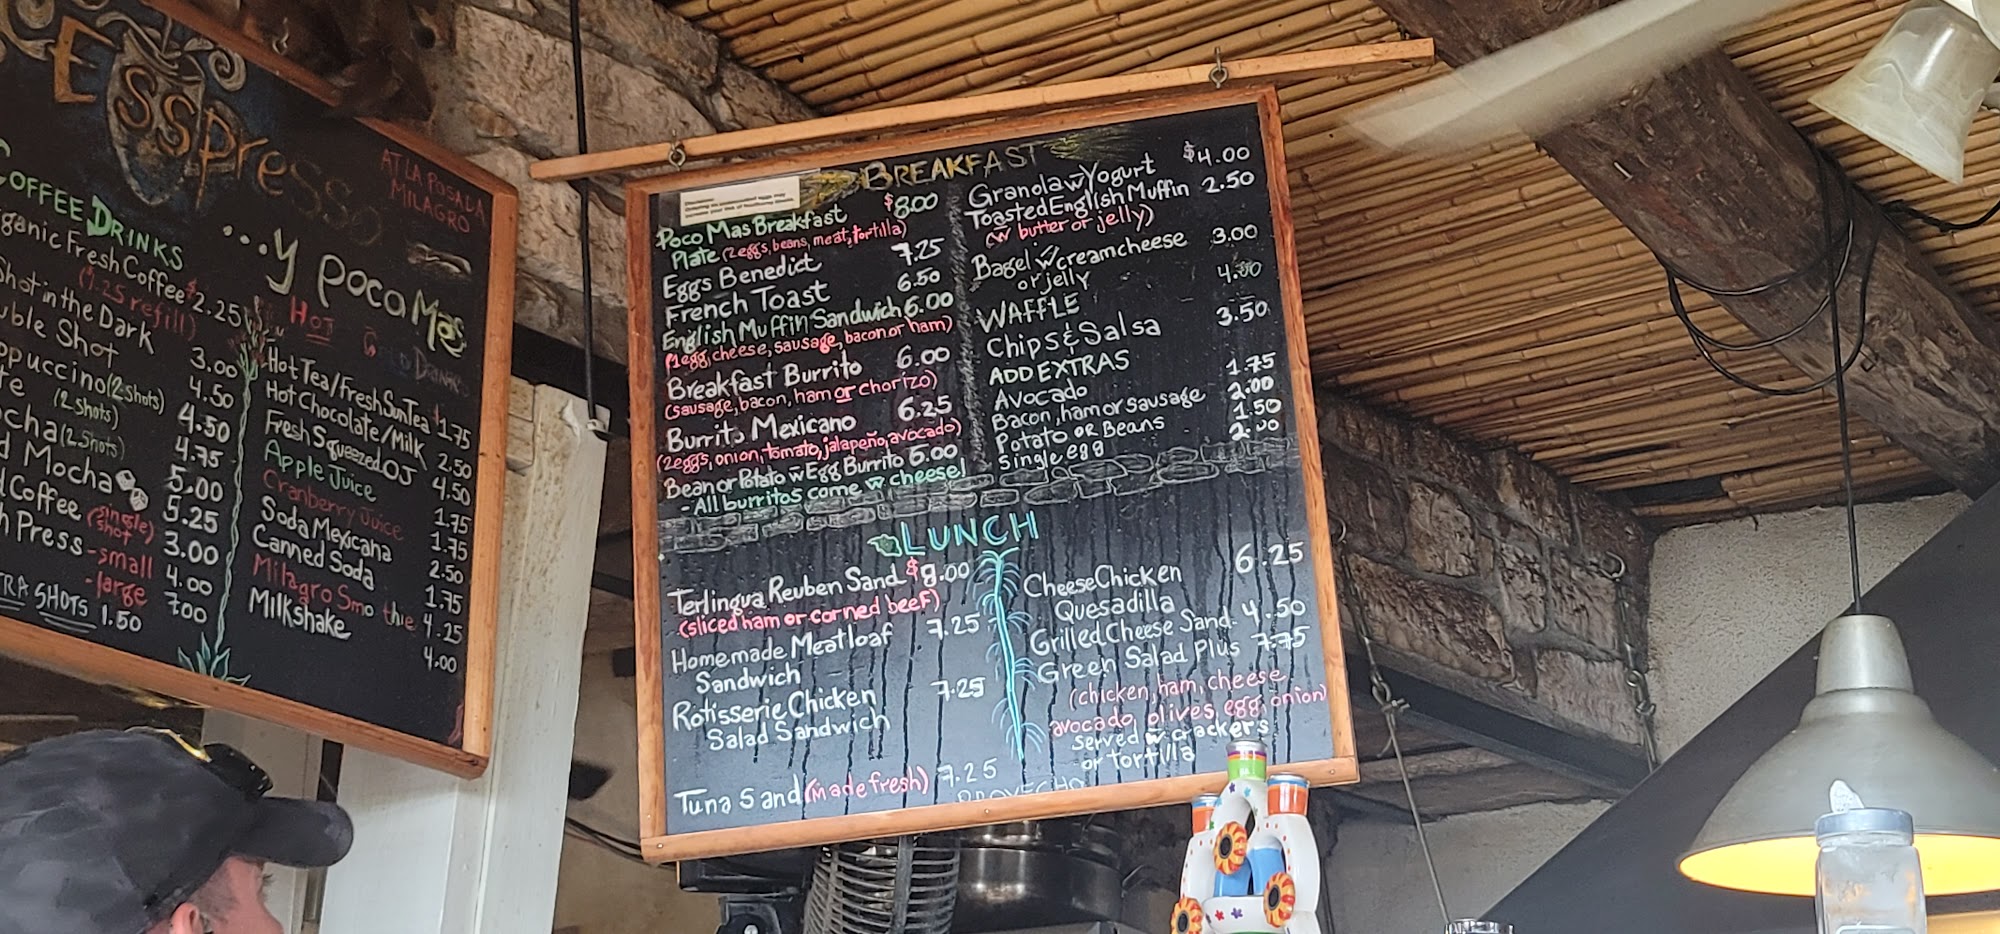 Espresso
...y poco Mas
AT LA POSADA
MILAGRO
COFFEE DRINKS
Fresh Coffee $2.25
(1.25 refill)
Shot in the Dark 3.00
Shot 4.50
(2 shots) 4.50
(2 shots) 4.75
(2 shots) 5.00
Mocha 5.25
Coffee (single shot) 3.00
Press - small 4.00
- large 7.00
SHOTS 1.50
HOT
Hot Tea/Fresh Sun Tea $1.75
Hot Chocolate/Milk 2.50
Fresh Squeezed OJ 4.50
Apple Juice 1.75
Cranberry Juice 1.75
Soda Mexicana 2.50
Canned Soda 1.75
Milagro Smo thie 4.25
Milkshake 4.00
BREAKFAST
Poco Mas Breakfast $8.00
Plate (2 eggs, beans, meat, tortilla)
Eggs Benedict 7.25
French Toast 6.50
English Muffin Sandwich 6.00
(1 egg, cheese, sausage, bacon or ham)
Breakfast Burrito 6.00
(sausage, bacon, ham or chorizo)
Burrito Mexicano 6.25
(2 eggs, onion, tomato, jalapeño, avocado)
Bean or Potato w Egg Burrito 6.00
- All burritos come w cheese!
Granola w Yogurt $4.00
Toasted English Muffin 2.50
(w butter or jelly)
Bagel w creamcheese 3.00
or jelly
WAFFLE 4.00
Chips & Salsa 3.50
ADD EXTRAS
Avocado 1.75
Bacon, ham or sausage 2.00
Potato or Beans 1.50
Single egg 2.00
LUNCH
Terlingua Reuben Sand $8.00
(sliced ham or corned beef)
Homemade Meatloaf 7.25
Sandwich
Rotisserie Chicken 7.25
Salad Sandwich
Tuna Sand (made fresh) 7.25
Cheese Chicken 6.25
Quesadilla
Grilled Cheese Sand. 4.50
Green Salad Plus 7.75
(chicken, ham, cheese
avocado, olives, egg, onion)
served w crackers
or tortilla
PROVECHO